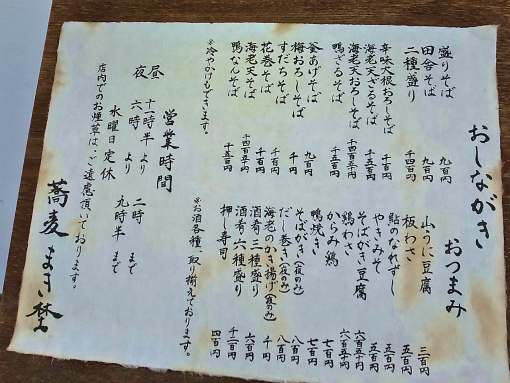 おしながき
盛りそば 九百円
田舎そば 九百円
二種盛り 千四百円
辛味大根おろしそば 千百円
海老天ざるそば 千五百円
海老天おろしそば 千四百五十円
鴨ざるそば 千五百円
釜あげそば 九百円
梅おろしそば 千円
すだちそば 千百円
花巻そば 千百円
海老天そば 千四百五十円
鴨なんそば 千五百円
※冷やかけもできます。
おつまみ
山うに豆腐 三百円
板わさ 五百円
鮎のなれずし 五百円
やきみそ 五百円
そばがき豆腐 六百五十円
鶏わさ 六百五十円
からみ鶏 七百円
鴨焼き 七百円
そばがき(夜のみ) 八百円
だし巻き(夜のみ) 八百円
海老のかき揚げ(夜のみ) 千円
酒肴三種盛り 六百円
酒肴六種盛り 千二百円
押し寿司 四百円
※お酒各種、取り揃えております。
営業時間
昼 十一時半より 二時まで
夜 六時より 九時半まで
水曜日定休
店内でのお煙草は、ご遠慮頂いております。
蕎麦 まき埜